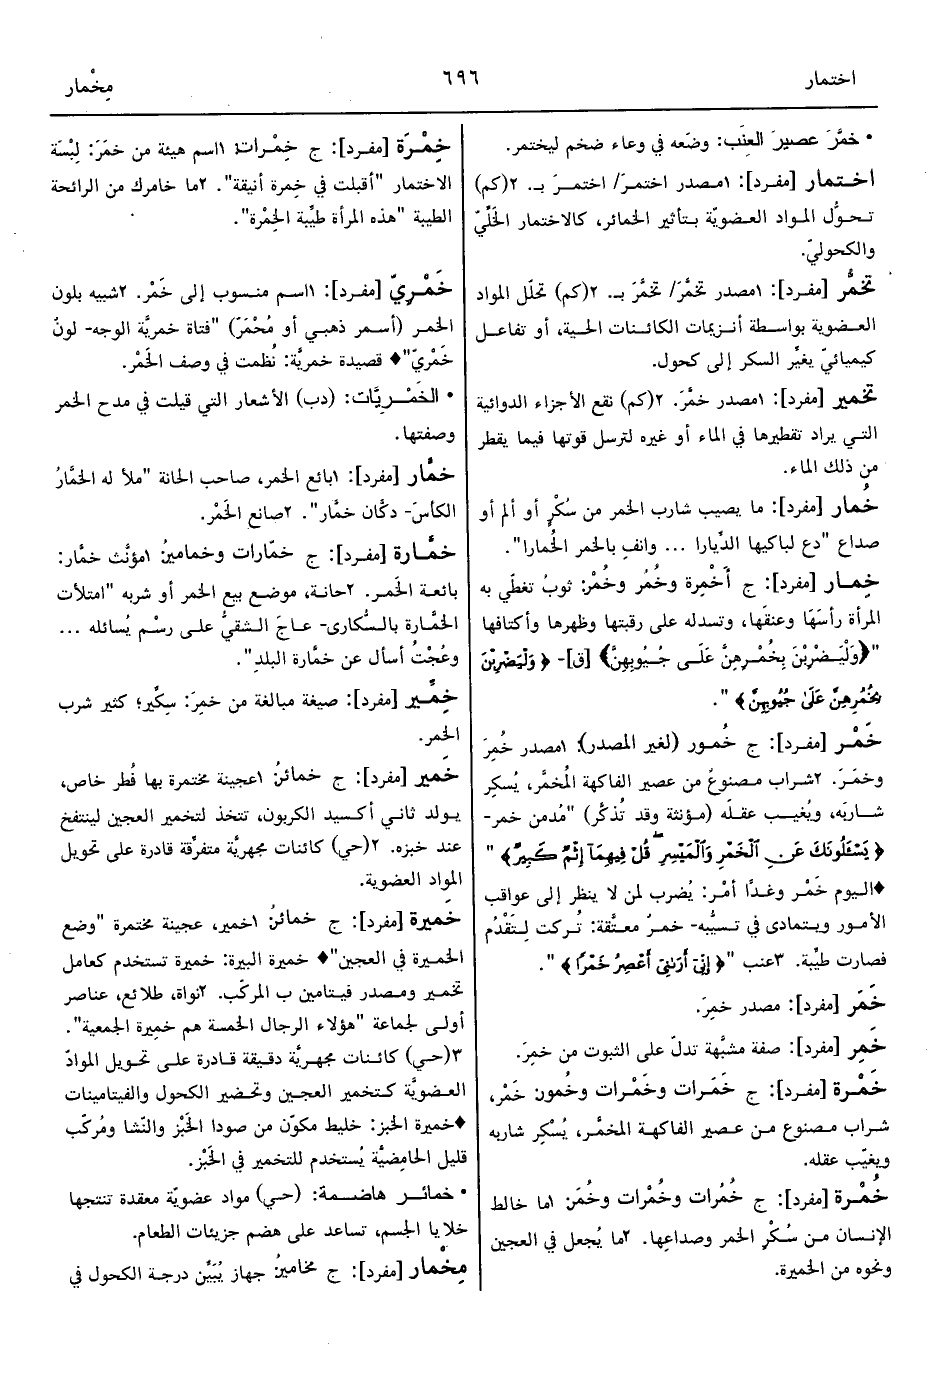 اختمار
٦٩٦
مِخْمار
• خمَّرَ عصيرَ العِنَب: وضَعه في وعاء ضخم ليختمر.
اختمار [مفرد]: ١مصدر اختمرَ/ اختمرَ بـ. ٢(كم)
تحوُّل المواد العضويّة بتأثير الخمائر، كالاختمار الخَلِّيّ
والكحوليّ.
تخمُّر [مفرد]: ١مصدر تخمَّرَ/ تخمَّرَ بـ. ٢(كم) تحلّل المواد
العضوية بواسطة أنزيمات الكائنات الحية، أو تفاعل
كيميائيّ يغيَّر السكر إلى كحول.
تخمير [مفرد]: ١مصدر خمَّرَ. ٢(كم) نقع الأجزاء الدوائية
التي يراد تقطيرها في الماء أو غيره لترسل قوتها فيما يقطر
من ذلك الماء.
خُمار [مفرد]: ما يصيب شارب الخمر من سُكْرٍ أو ألم أو
صداع "دع لباكيها الدِّيارا ... وانفِ بالخمر الخُمارا".
خِمار [مفرد]: ج أَخْمِرة وخُمُر وخُمْر: ثوبُ تغطِّي به
المرأة رأسَهَا وعنقَها، وتسدله على رقبتها وظهرها وأكتافها
"﴿وَلْيَضْرِبْنَ بِخُمْرِهِنَّ عَلَى جُيُوبِهِنَّ﴾ [ق]- ﴿ وَلْيَضْرِبْنَ
بِخُمُرِهِنَّ عَلَىٰ جُيُوبِهِنَّ ﴾ ".
خَمْر [مفرد]: ج خُمور (لغير المصدر): ١مصدر خُمِرَ
وخمَرَ. ٢شراب مصنوعُ من عصير الفاكهة المُخمَّر، يُسكِر
شاربَه، ويُغيب عقلَه (مؤنثة وقد تُذكَّر) "مُدمن خمر-
﴿ يَسْـَٔلُونَكَ عَنِ ٱلْخَمْرِ وَٱلْمَيْسِرِ قُلْ فِيهِمَآ إِثْمٌ كَبِيرٌ ﴾ "
♦اليوم خَمْر وغدًا أمْر: يُضرب لمن لا ينظر إلى عواقب
الأمور ويتمادى في تسيُّبه- خمرُ معتَّقة: تُركت لِتَقْدُم
فصارت طيِّبة. ٣عنب "﴿ إِنِّىٓ أَرَىٰنِىٓ أَعْصِرُ خَمْرًا ﴾ ".
خَمَر [مفرد]: مصدر خمِرَ.
خَمِر [مفرد]: صفة مشبَّهة تدلّ على الثبوت من خمِرَ.
خَمْرة [مفرد]: ج خَمَرات وخَمْرات وخُمون خَمْر،
شراب مصنوع من عصير الفاكهة المخمَّر، يُسْكِر شاربه
ويغيِّب عقله.
خُمْرة [مفرد]: ج خُمُرات وخُمْرات وخُمَن ١ما خالط
الإنسان من سُكْرِ الخمر وصداعِها. ٢ما يُجعل في العجين
ونحوه من الخميرة.
خِمْرَة [مفرد]: ج خِمْرات: ١اسم هيئة من خمَرَ: لِبْسَة
الاختمار "أقبلت في خِمرة أنيقة". ٢ما خامرك من الرائحة
الطيبة "هذه المرأة طيِّبة الخِمْرة".
خَمْريّ [مفرد]: ١اسم منسوب إلى خَمْر. ٢شبيه بلون
الخمر (أسمر ذهبي أو مُحْمَرّ) "فتاة خمريَّة الوجه- لونُ
خَمْريّ"♦ قصيدة خمريَّة: نُظمت في وصف الخَمْر.
• الخَمْريَّات: (دب) الأشعار التي قيلت في مدح الخمر
وصفتها.
خمَّار [مفرد]: ١بائع الخمر، صاحب الحانة "ملأ له الخمَّارُ
الكأسَ- دكَّان خمَّار". ٢صانع الخَمْر.
خمَّارة [مفرد]: ج خمّارات وخمامينُ: ١مؤنَّث خمَّار:
بائعة الخَمر. ٢حانة، موضع بيع الخمر أو شربه "امتلأت
الخمَّارة بالسُّكارى- عاجَ الشقيُّ على رسْم يُسائله ...
وعُجْتُ أسأل عن خمَّارة البلدِ".
خِمِّير [مفرد]: صيغة مبالغة من خمِرَ: سِكِّير؛ كثير شرب
الخمر.
خمير [مفرد]: ج خمائنُ: ١عجينة مختمرة بها فُطر خاص،
يولد ثاني أكسيد الكربون، تتخذ لتخمير العجين لينتفخ
عند خبزه. ٢(حي) كائنات مجهريَّة متفرِّقة قادرة على تحويل
المواد العضوية.
خميرة [مفرد]: ج خمائنُ: ١خمير، عجينة مختمرة "وضع
الخميرة في العجين"♦ خميرة البيرة: خميرة تستخدم كعامل
تخمير ومصدر فيتامين ب المركّب. ٢نواة، طلائع، عناصر
أولى لجماعة "هؤلاء الرجال الخمسة هم خميرة الجمعية".
٣(حي) كائنات مجهريَّة دقيقة قادرة على تحويل الموادّ
العضويَّة كتخمير العجين وتحضير الكحول والفيتامينات
♦خميرة الخبز: خليط مكوّن من صودا الخَبْز والنّشا ومُركّب
قليل الحامِضيَّة يُستخدم للتخمير في الخَبْز.
• خمائر هاضمة: (حي) مواد عضويّة معقدة تنتجها
خلايا الجسم، تساعد على هضم جزيئات الطعام.
مِخْمار [مفرد]: ج مخامينُ: جهاز يُبَيِّن درجة الكحول في